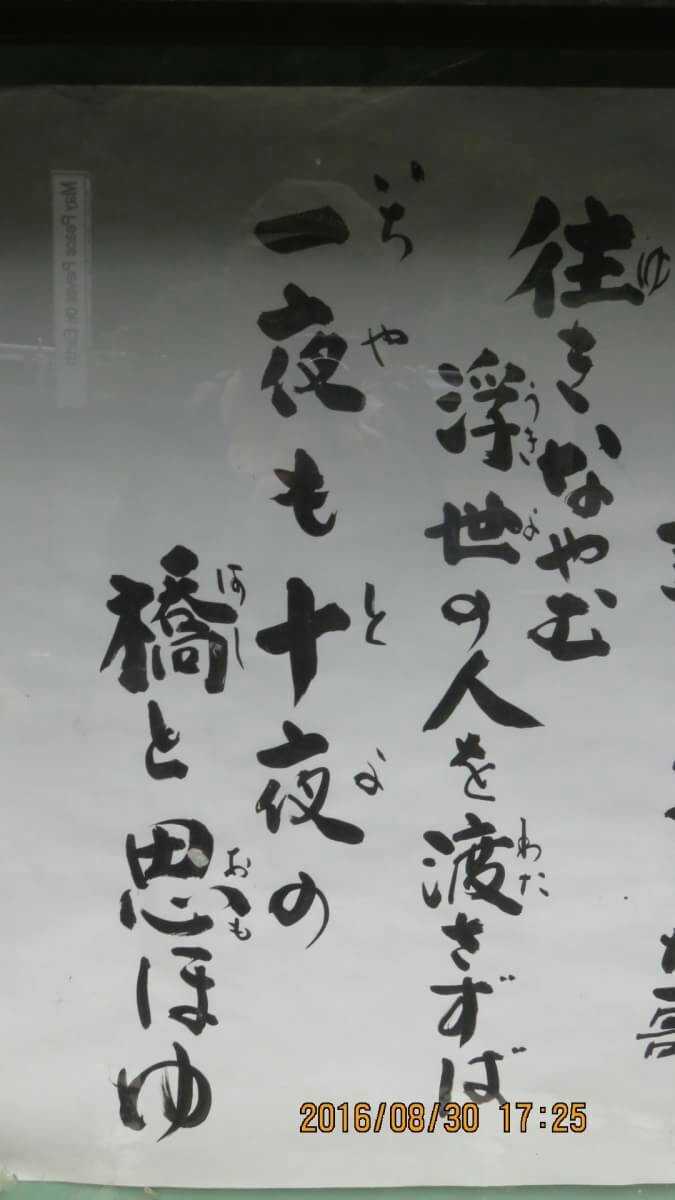 往きなやむ
ゆ
浮世の人を渡さずば
うき よ わた
一夜も十夜の
いち や と よ
橋と思ほゆ
はし おも
May Peace Prevail On Earth
2016/08/30 17:25